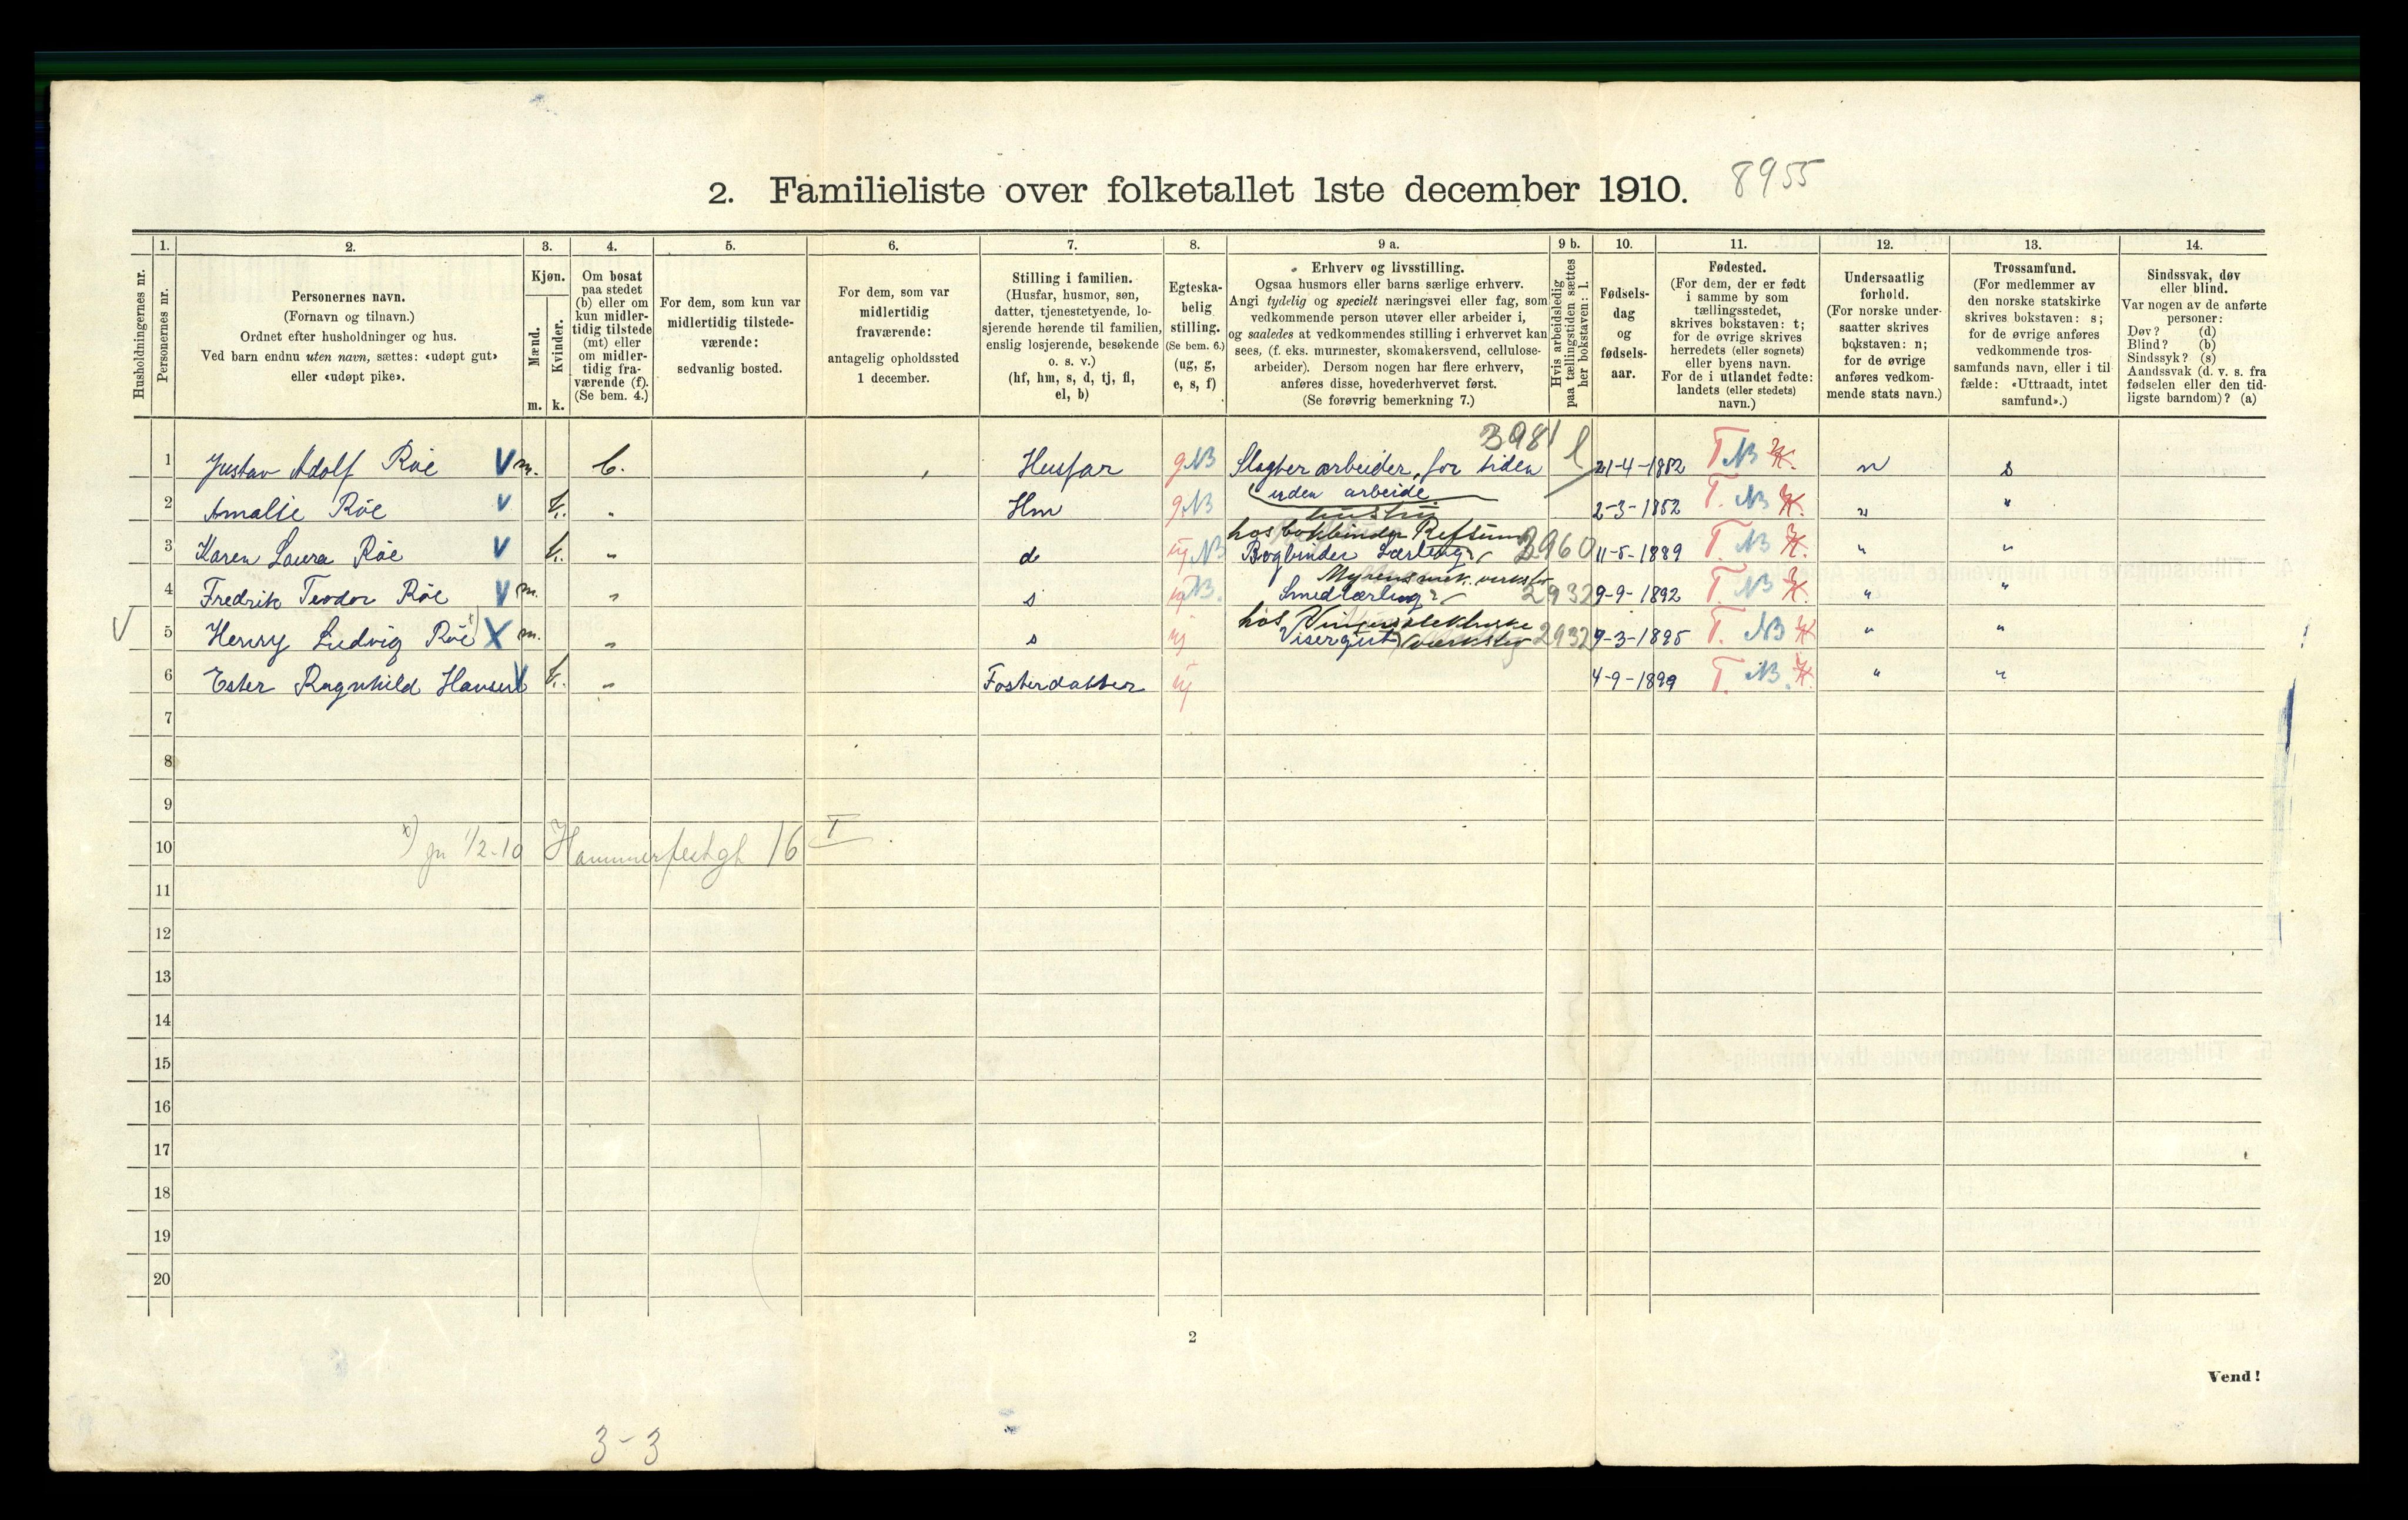 2. Familieliste over folketallet 1ste december 1910. 8955
Husholdningernes nr.
1.
Personernes nr.
2.
Personernes navn.
(Fornavn og tilnavn.)
Ordnet efter husholdninger og hus.
Ved barn endnu uten navn, sættes: «udøpt gut»
eller «udøpt pike».
3.
Kjøn.
Mænd.
Kvinder.
m. k.
4.
Om bosat
paa stedet
(b) eller om
kun midler-
tidig tilstede
(mt) eller
om midler-
tidig fra-
værende (f).
(Se bem. 4.)
5.
For dem, som kun var
midlertidig tilstede-
værende:
sedvanlig bosted.
6.
For dem, som var
midlertidig
fraværende:
antagelig opholdssted
1 december.
7.
Stilling i familien.
(Husfar, husmor, søn,
datter, tjenestetyende, lo-
sjerende hørende til familien,
enslig losjerende, besøkende
o. s. v.)
(hf, hm, s, d, tj, fl,
el, b)
8.
Egteska-
belig
stilling.
(Se bem. 6.)
(ug, g,
e, s, f)
9 a.
Erhverv og livsstilling.
Ogsaa husmors eller barns særlige erhverv.
Angi tydelig og specielt næringsvei eller fag, som
vedkommende person utøver eller arbeider i,
og saaledes at vedkommendes stilling i erhvervet kan
sees, (f. eks. murmester, skomakersvend, cellulose-
arbeider). Dersom nogen har flere erhverv,
anføres disse, hovederhvervet først.
(Se forøvrig bemerkning 7.)
9 b.
Hvis arbeidsledig
paa tællingstiden sættes
her bokstaven: l.
10.
Fødsels-
dag
og
fødsels-
aar.
11.
Fødested.
(For dem, der er født
i samme by som
tællingsstedet,
skrives bokstaven: t;
for de øvrige skrives
herredets (eller sognets)
eller byens navn.
For de i utlandet fødte:
landets (eller stedets)
navn.)
12.
Undersaatlig
forhold.
(For norske under-
saatter skrives
bokstaven: n;
for de øvrige
anføres vedkom-
mende stats navn.)
13.
Trossamfund.
(For medlemmer av
den norske statskirke
skrives bokstaven: s;
for de øvrige anføres
vedkommende tros-
samfunds navn, eller i til-
fælde: «Uttraadt, intet
samfund».)
14.
Sindssvak, døv
eller blind.
Var nogen av de anførte
personer:
Døv? (d)
Blind? (b)
Sindssyk? (s)
Aandssvak (d. v. s. fra
fødselen eller den tid-
ligste barndom)? (a)
3981
1 Gustav Adolf Røe V m. b. Husfar g NB Slagterarbeider, for tiden l 21-4-1852 T NB K. n s
uden arbeide
2 Amalie Røe V k. " Hm g NB hustru 2-3-1852 T. NB K. n "
hos bokbinder Refsum
3 Karen Laura Røe V k. " d ug NB Bogbinder Lærling 2960 11-5-1889 T. NB K. " "
Myrens mek. verksted
4 Fredrik Teodor Røe V m. " s ug NB. Smedlærling 2932 9-9-1892 T. NB K. " "
hos elektriske
V 5 Henry Ludvig Røe x) X m. " s ug Visergut verksted 2932 9-3-1895 T. NB K " "
6 Ester Ragnhild Hansen V k. " Fosterdatter ug 4-9-1899 T. NB. K. " "
7
8
9
10 x) pr 1/2-10 Hammerfestgt 16 I
11
12
13
14
15
16
17
18
19
20
2
Vend!
3-3